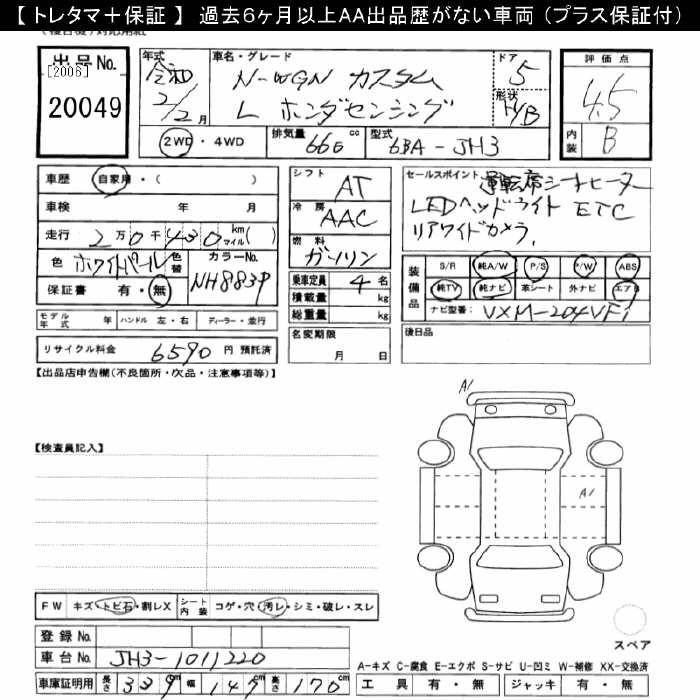 【 トレタマ＋保証 】 過去6ヶ月以上AA出品歴がない車両（プラス保証付）
出品No.
[2006]
20049
年式
令和
2/2月
車名・グレード
N-WGN カスタム
L ホンダセンシング
ドア
5
形状
H/B
評価点
4.5
内装
B
2WD・4WD
排気量 660 cc
型式 6BA-JH3
車歴 自家用・( )
車検 年 月
走行 2万0千430 km マイル( )
色 ホワイトパール 色替
カラーNo. NH883P
保証書 有・無
シフト AT
冷房 AAC
燃料 ガソリン
乗車定員 4 名
積載量 kg
総重量 kg
セールスポイント 運転席シートヒーター
LEDヘッドライト ETC
リアワイドカメラ.
装備品
S/R 純A/W P/S P/W ABS
純TV 純ナビ 革シート 外ナビ エアB
ナビ型番: VXM-204VFi
モデル年式 年 ハンドル 左・右 ディーラー・並行
名変期限
月 日
後日品
リサイクル料金 6590 円 預託済
【出品店申告欄(不良箇所・欠品・注意事項等)】
A1
A1
【検査員記入】
FW キズ・トビ石・割レX シート内装 コゲ・穴・汚レ・シミ・破レ・スレ
スペア
登録No.
車台No. JH3-1011220
車庫証明用 長さ 339 cm 幅 147 cm 高さ 170 cm
A-キズ C-腐食 E-エクボ S-サビ U-凹ミ W-補修 XX-交換済
工具 有・無 ジャッキ 有・無